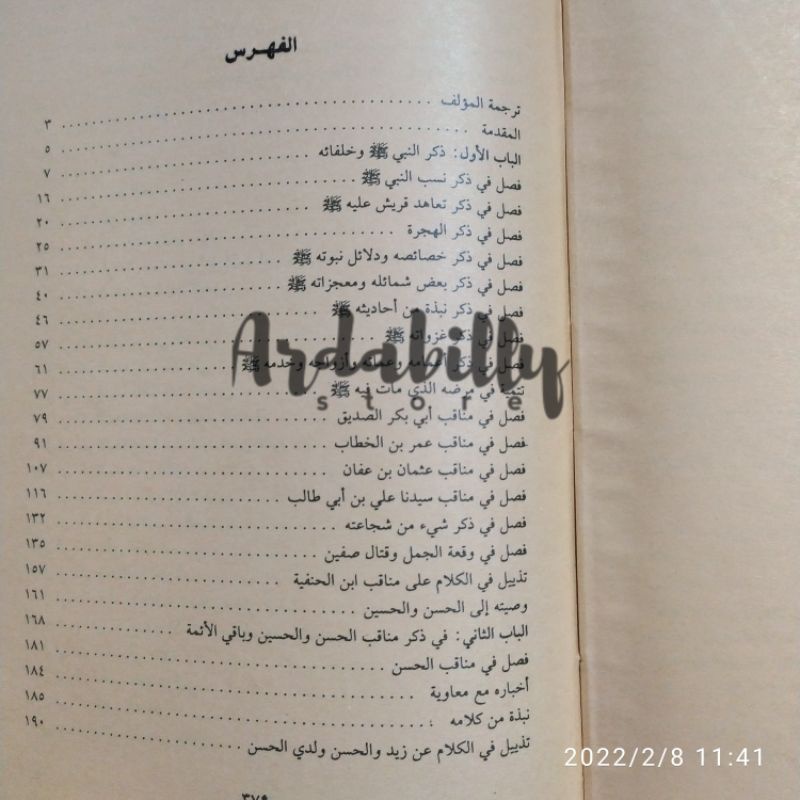 الفهرس
ترجمة المؤلف ........ ٣
المقدمة ........ ٥
الباب الأول: ذكر النبي ﷺ وخلفائه ........ ٧
فصل في ذكر نسب النبي ﷺ ........ ١٦
فصل في ذكر تعاهد قريش عليه ﷺ ........ ٢٠
فصل في ذكر الهجرة ........ ٢٥
فصل في ذكر خصائصه ودلائل نبوته ﷺ ........ ٣١
فصل في ذكر بعض شمائله ومعجزاته ﷺ ........ ٤٠
فصل في ذكر نبذة من أحاديثه ﷺ ........ ٤٦
فصل في ذكر غزواته ﷺ ........ ٥٧
فصل في ذكر أعمامه وعماته وأزواجه وخدمه ﷺ ........ ٦١
تتمة في مرضه الذي مات فيه ﷺ ........ ٧٧
فصل في مناقب أبي بكر الصديق ........ ٧٩
فصل في مناقب عمر بن الخطاب ........ ٩١
فصل في مناقب عثمان بن عفان ........ ١٠٧
فصل في مناقب سيدنا علي بن أبي طالب ........ ١١٦
فصل في ذكر شيء من شجاعته ........ ١٣٢
فصل في وقعة الجمل وقتال صفين ........ ١٣٥
تذييل في الكلام على مناقب ابن الحنفية ........ ١٥٧
وصيته إلى الحسن والحسين ........ ١٦١
الباب الثاني: في ذكر مناقب الحسن والحسين وباقي الأئمة ........ ١٦٨
فصل في مناقب الحسن ........ ١٨١
أخباره مع معاوية ........ ١٨٤
نبذة من كلامه ........ ١٨٥
تذييل في الكلام عن زيد والحسن ولدي الحسن ........ ١٩٠
٣٧٩
Ardabilly
store
2022/2/8 11:41